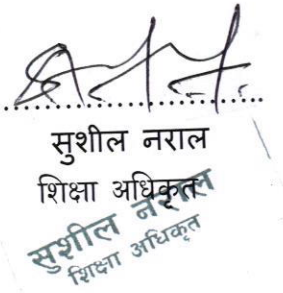 सुशील नराल
शिक्षा अधिकृत
सुशील नराल
शिक्षा अधिकृत